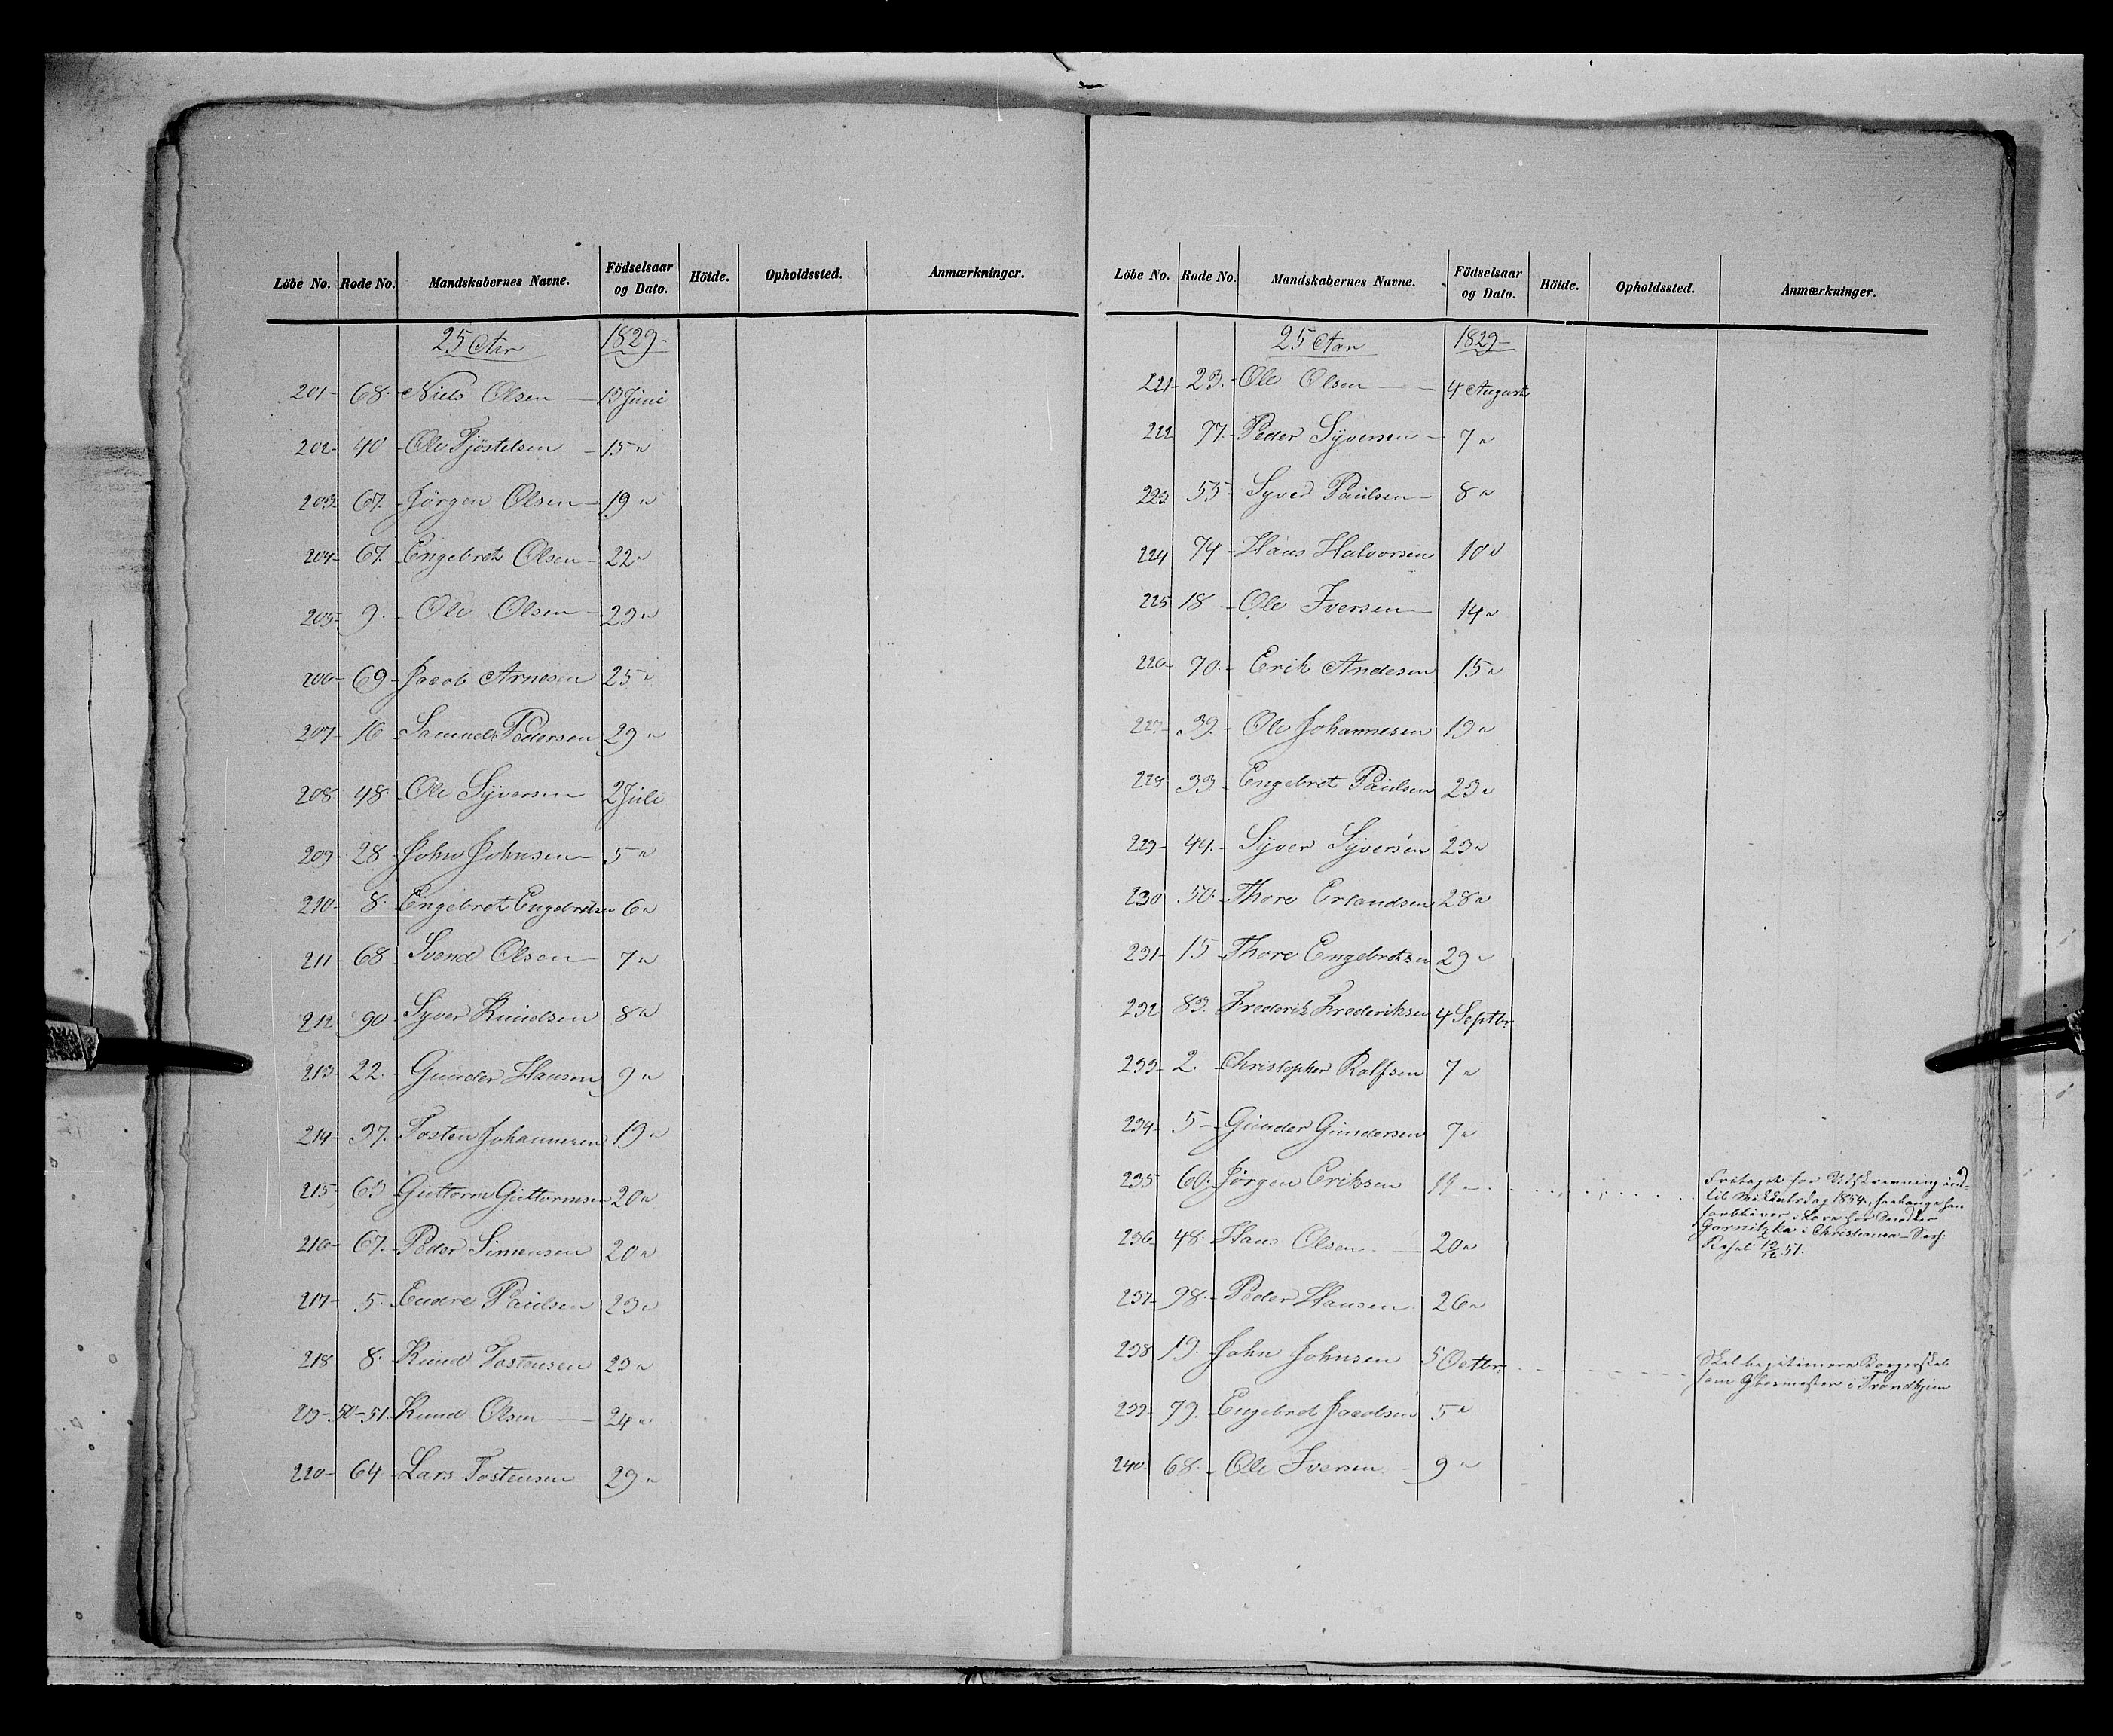 Löbe No. Rode No. Mandskabernes Navne. Födselsaar og Dato. Höide. Opholdssted. Anmærkninger.
25 Aar 1829-
201- 68. Niels Olsen — 13 Juni
202- 40 - Ole Tjöstelsen - 15 "
203- 67. Jörgen Olsen - 19 "
204- 67. Engebret Olsen - 22 "
205- 9. - Ole Olsen - 23 "
206- 69 - Jacob Arnesen 25 "
207- 16 - Samuel Pedersen 29 "
208 48. - Ole Syversen 2 Juli
209- 28 - John Johnsen - 5 "
210- 8. Engebret Engebretsen 6 "
211- 68 - Svend Olsen - 7 "
212 90 - Syver Knudsen 8 "
213- 22. - Gunder Hansen 9 "
214- 37. Tosten Johannesen 19 "
215- 63 Guttorm Guttormsen 20 "
216- 67. - Peder Simensen 20 "
217- 5. - Endre Paulsen 23 "
218 8. Knud Tostensen 23 "
219- 50-51. Knud Olsen — 24 "
220- 64 - Lars Tostensen 29 "
Löbe No. Rode No. Mandskabernes Navne. Födselsaar og Dato. Höide. Opholdssted. Anmærkninger.
25 Aar 1829-
221- 23. - Ole Olsen — 4 August
222 77. - Peder Syversen - 7 "
223 55 - Syver Paulsen - 8 "
224 74 - Hans Halvorsen 10 "
225 18 - Ole Iversen - 14 "
226- 70. - Erik Andesen 15 "
227- 39. - Ole Johannesen 19 "
228 33. - Engebret Paulsen 23 "
229- 44. - Syver Syversen 23 "
230 50. - Thore Erlandsen 28 "
231- 15 - Thore Engebretsen 29 "
232 83. Frederik Frederiksen 4 Septbr.
233- 2. - Christopher Rolfsen 7 "
234- 5 - Gunder Gundersen 7 "
235 60. Jörgen Eriksen 19 - Fritaget for Udskrivning ind-
til 1854, saalænge han
forbliver i Lære hos
Gornitzka i Christiania -
236- 48. Hans Olsen. — 20 "
237- 98. - Peder Hansen 26 "
238 19. John Johnsen 5 Octbr. Skal legitimere Borgerskab
som i Trondhjem
239- 79. - Engebret Jacobsen 5 "
240. 68. - Ole Iversen - 9 "